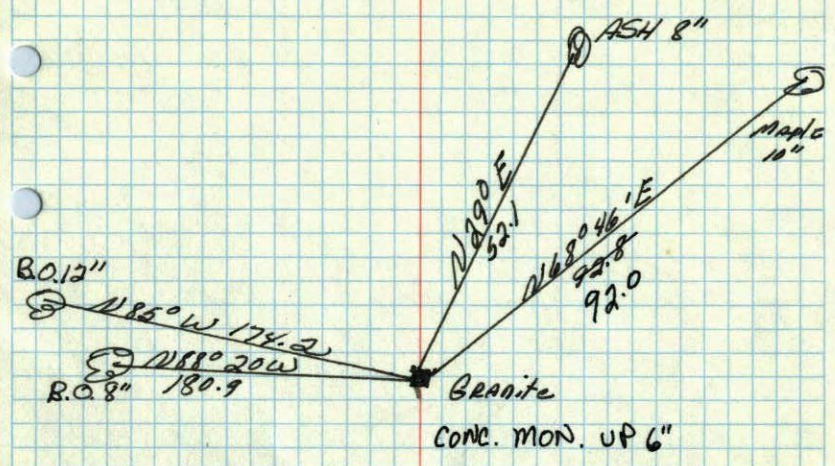 ASH 8"
MAPLE
10"
N 29° E
52.1
N 68° 46' E
92.8
92.0
B.O. 12"
N 85° W 174.2
N 88° 20 W
180.9
B.O. 8"
GRANite
CONC. MON. UP 6"